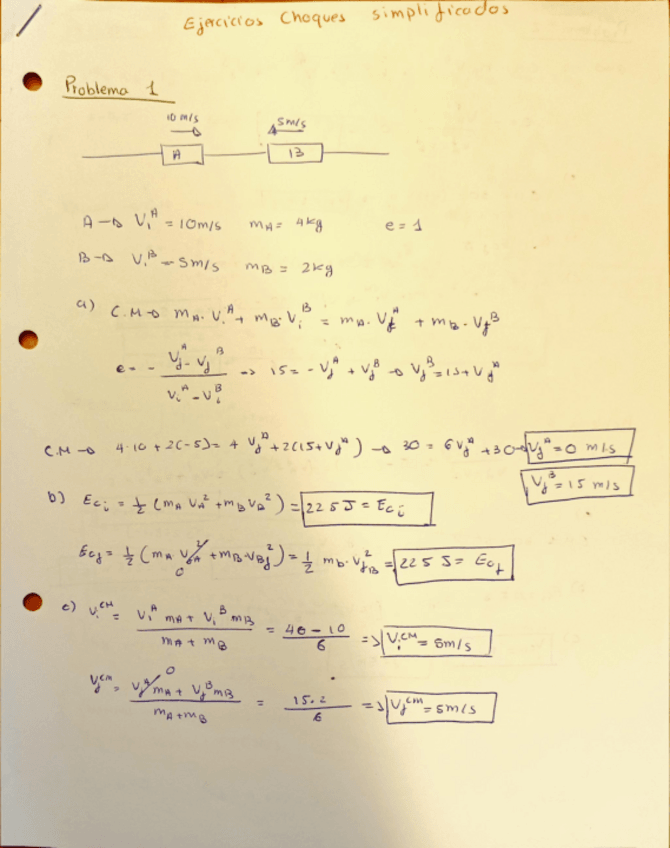 Ejercicios Choques simplificados
Problema 1
10 m/s 5m/s
A B
A→ Vᵢᴬ = 10m/s mA= 4kg e = 1
B→ Vᵢᴮ = 5m/s mB = 2kg
a) C.M→ mA. Vᵢᴬ + mB. Vᵢᴮ = mA. V_fᴬ + mB. V_fᴮ
e = - (V_fᴬ - V_fᴮ) / (Vᵢᴬ - Vᵢᴮ) => 15 = - V_fᴬ + V_fᴮ → V_fᴮ = 15 + V_fᴬ
C.M → 4·10 + 2(-5) = 4 V_fᴬ + 2(15+V_fᴬ) → 30 = 6V_fᴬ + 30 → V_fᴬ = 0 m/s
V_fᴮ = 15 m/s
b) Ecᵢ = ½ (mA VA² + mB VB²) = 225 J = Ecᵢ
Ec_f = ½ (mA V_fA² + mB. VB_f²) = ½ mb. V_fB² = 225 J = Ec_f
0
c) Vᵢᶜᴹ = (Vᵢᴬ mA + Vᵢᴮ mB) / (mA + mB) = (40 - 10) / 6 => Vᵢᶜᴹ = 5m/s
0
V_fᶜᴹ = (V_fᴬ mA + V_fᴮ mB) / (mA + mB) = (15.2) / 6 => V_fᶜᴹ = 5m/s